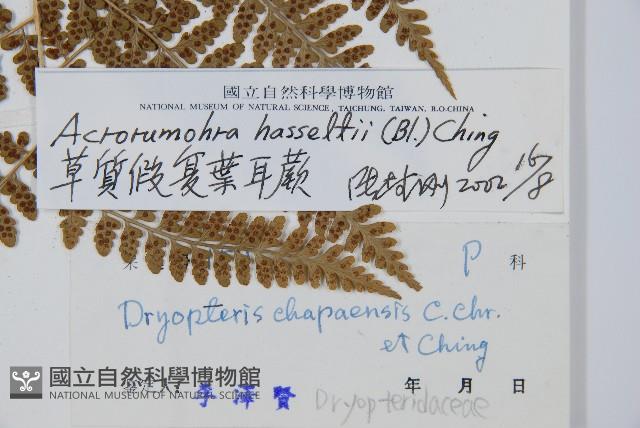 國立自然科學博物館
NATIONAL MUSEUM OF NATURAL SCIENCE, TAICHUNG, TAIWAN, R.O.CHINA
Acrorumohra hasseltii (Bl.) Ching
草質假复葉耳蕨 2002 16/8
P 科
Dryopteris chapaensis C. Chr.
et Ching
年 月 日
李澤賢 Dryopteridaceae
國立自然科學博物館
NATIONAL MUSEUM OF NATURAL SCIENCE